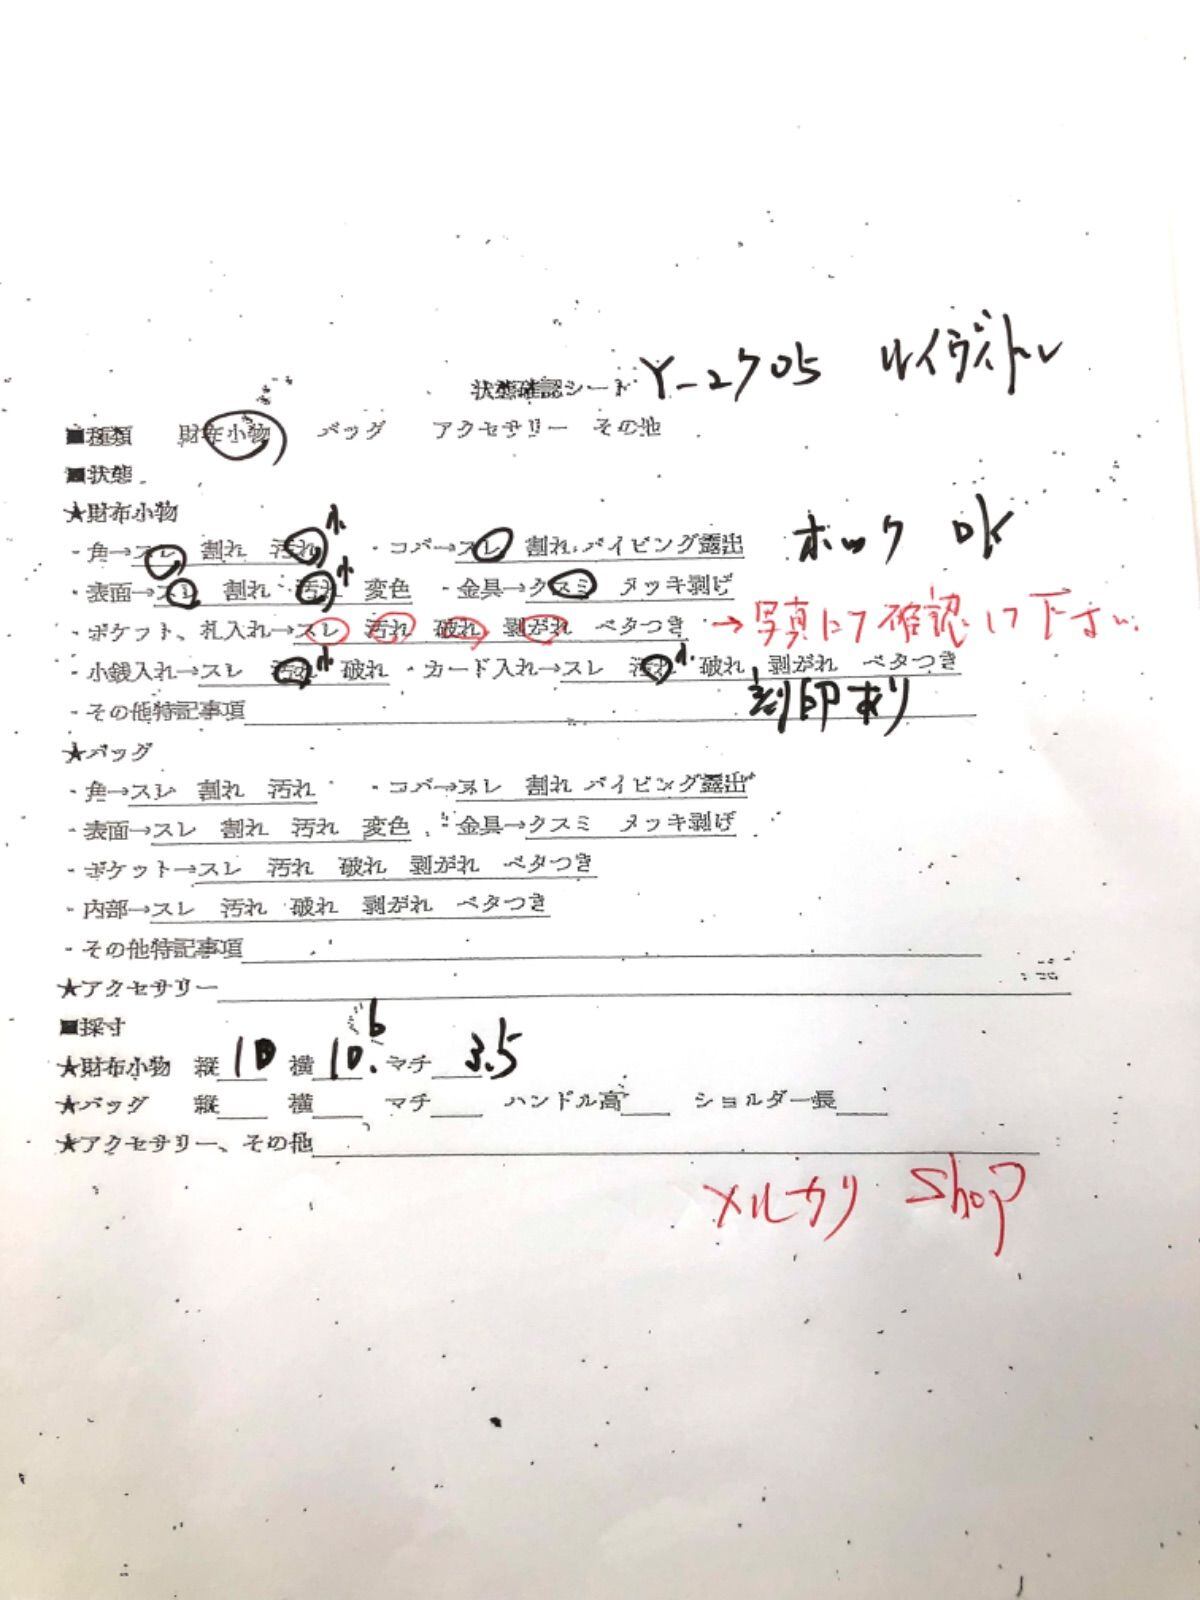 状態確認シート Y-2705 ルイヴィトン
■種類 財布小物 バッグ アクセサリー その他
■状態
★財布小物
・角→スレ 割れ 汚れ小 ・コバ→スレ 割れ パイピング露出 ホック OK
・表面→スレ 割れ 汚れ小 変色 ・金具→クスミ メッキ剥げ
・ポケット、札入れ→スレ 汚れ 破れ 剥がれ ベタつき →写真にて確認して下さい
・小銭入れ→スレ 汚れ小 破れ ・カード入れ→スレ 汚れ小 破れ 剥がれ ベタつき
・その他特記事項 刻印あり
★バッグ
・角→スレ 割れ 汚れ ・コバ→スレ 割れ パイピング露出
・表面→スレ 割れ 汚れ 変色 ・金具→クスミ メッキ剥げ
・ポケット→スレ 汚れ 破れ 剥がれ ベタつき
・内部→スレ 汚れ 破れ 剥がれ ベタつき
・その他特記事項
★アクセサリー
■採寸
★財布小物 縦 10 横 10.6 マチ 3.5
★バッグ 縦 横 マチ ハンドル高 ショルダー長
★アクセサリー、その他
メルカリ Shop